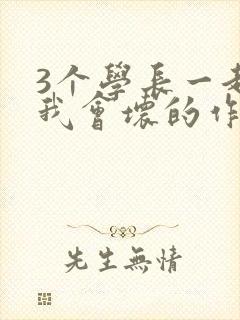 3个學長一
我會壞的作
先生無情